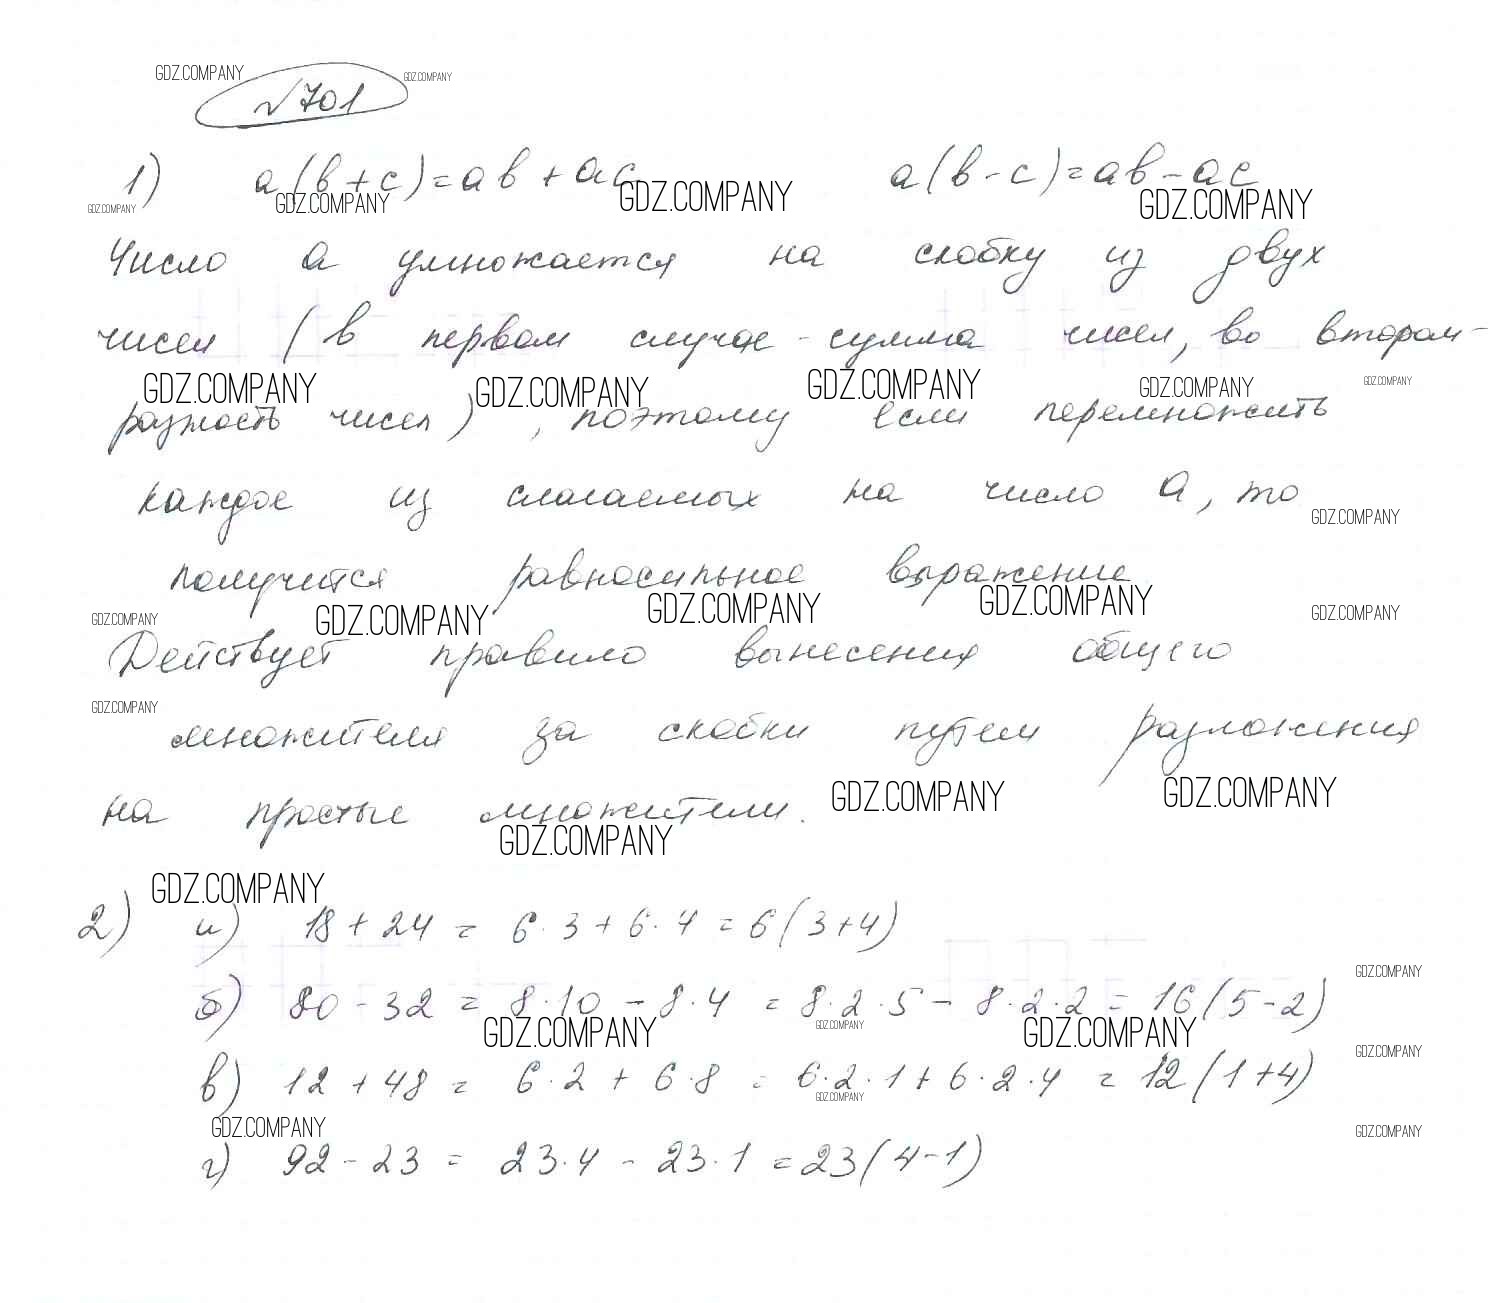 GDZ.COMPANY GDZ.COMPANY
√701
1) a(b+c)=ab+ac a(b-c)=ab-ac
GDZ.COMPANY GDZ.COMPANY GDZ.COMPANY GDZ.COMPANY
Число a умножается на скобку из двух
чисел (в первом случае - сумма чисел, во втором -
GDZ.COMPANY GDZ.COMPANY GDZ.COMPANY GDZ.COMPANY GDZ.COMPANY
разность чисел), поэтому если перемножить
каждое из слагаемых на число a, то
GDZ.COMPANY
получится равносильное выражение
GDZ.COMPANY GDZ.COMPANY GDZ.COMPANY GDZ.COMPANY GDZ.COMPANY
Действует правило вынесения общего
GDZ.COMPANY
множителя за скобки путем разложения
GDZ.COMPANY GDZ.COMPANY
на простые множители.
GDZ.COMPANY
GDZ.COMPANY
2) а) 18+24 = 6·3+6·4 = 6(3+4)
GDZ.COMPANY
б) 80-32 = 8·10-8·4 = 8·2·5-8·2·2 = 16(5-2)
GDZ.COMPANY GDZ.COMPANY GDZ.COMPANY GDZ.COMPANY
в) 12+48 = 6·2+6·8 = 6·2·1+6·2·4 = 12(1+4)
GDZ.COMPANY
GDZ.COMPANY GDZ.COMPANY
г) 92-23 = 23·4-23·1 = 23(4-1)